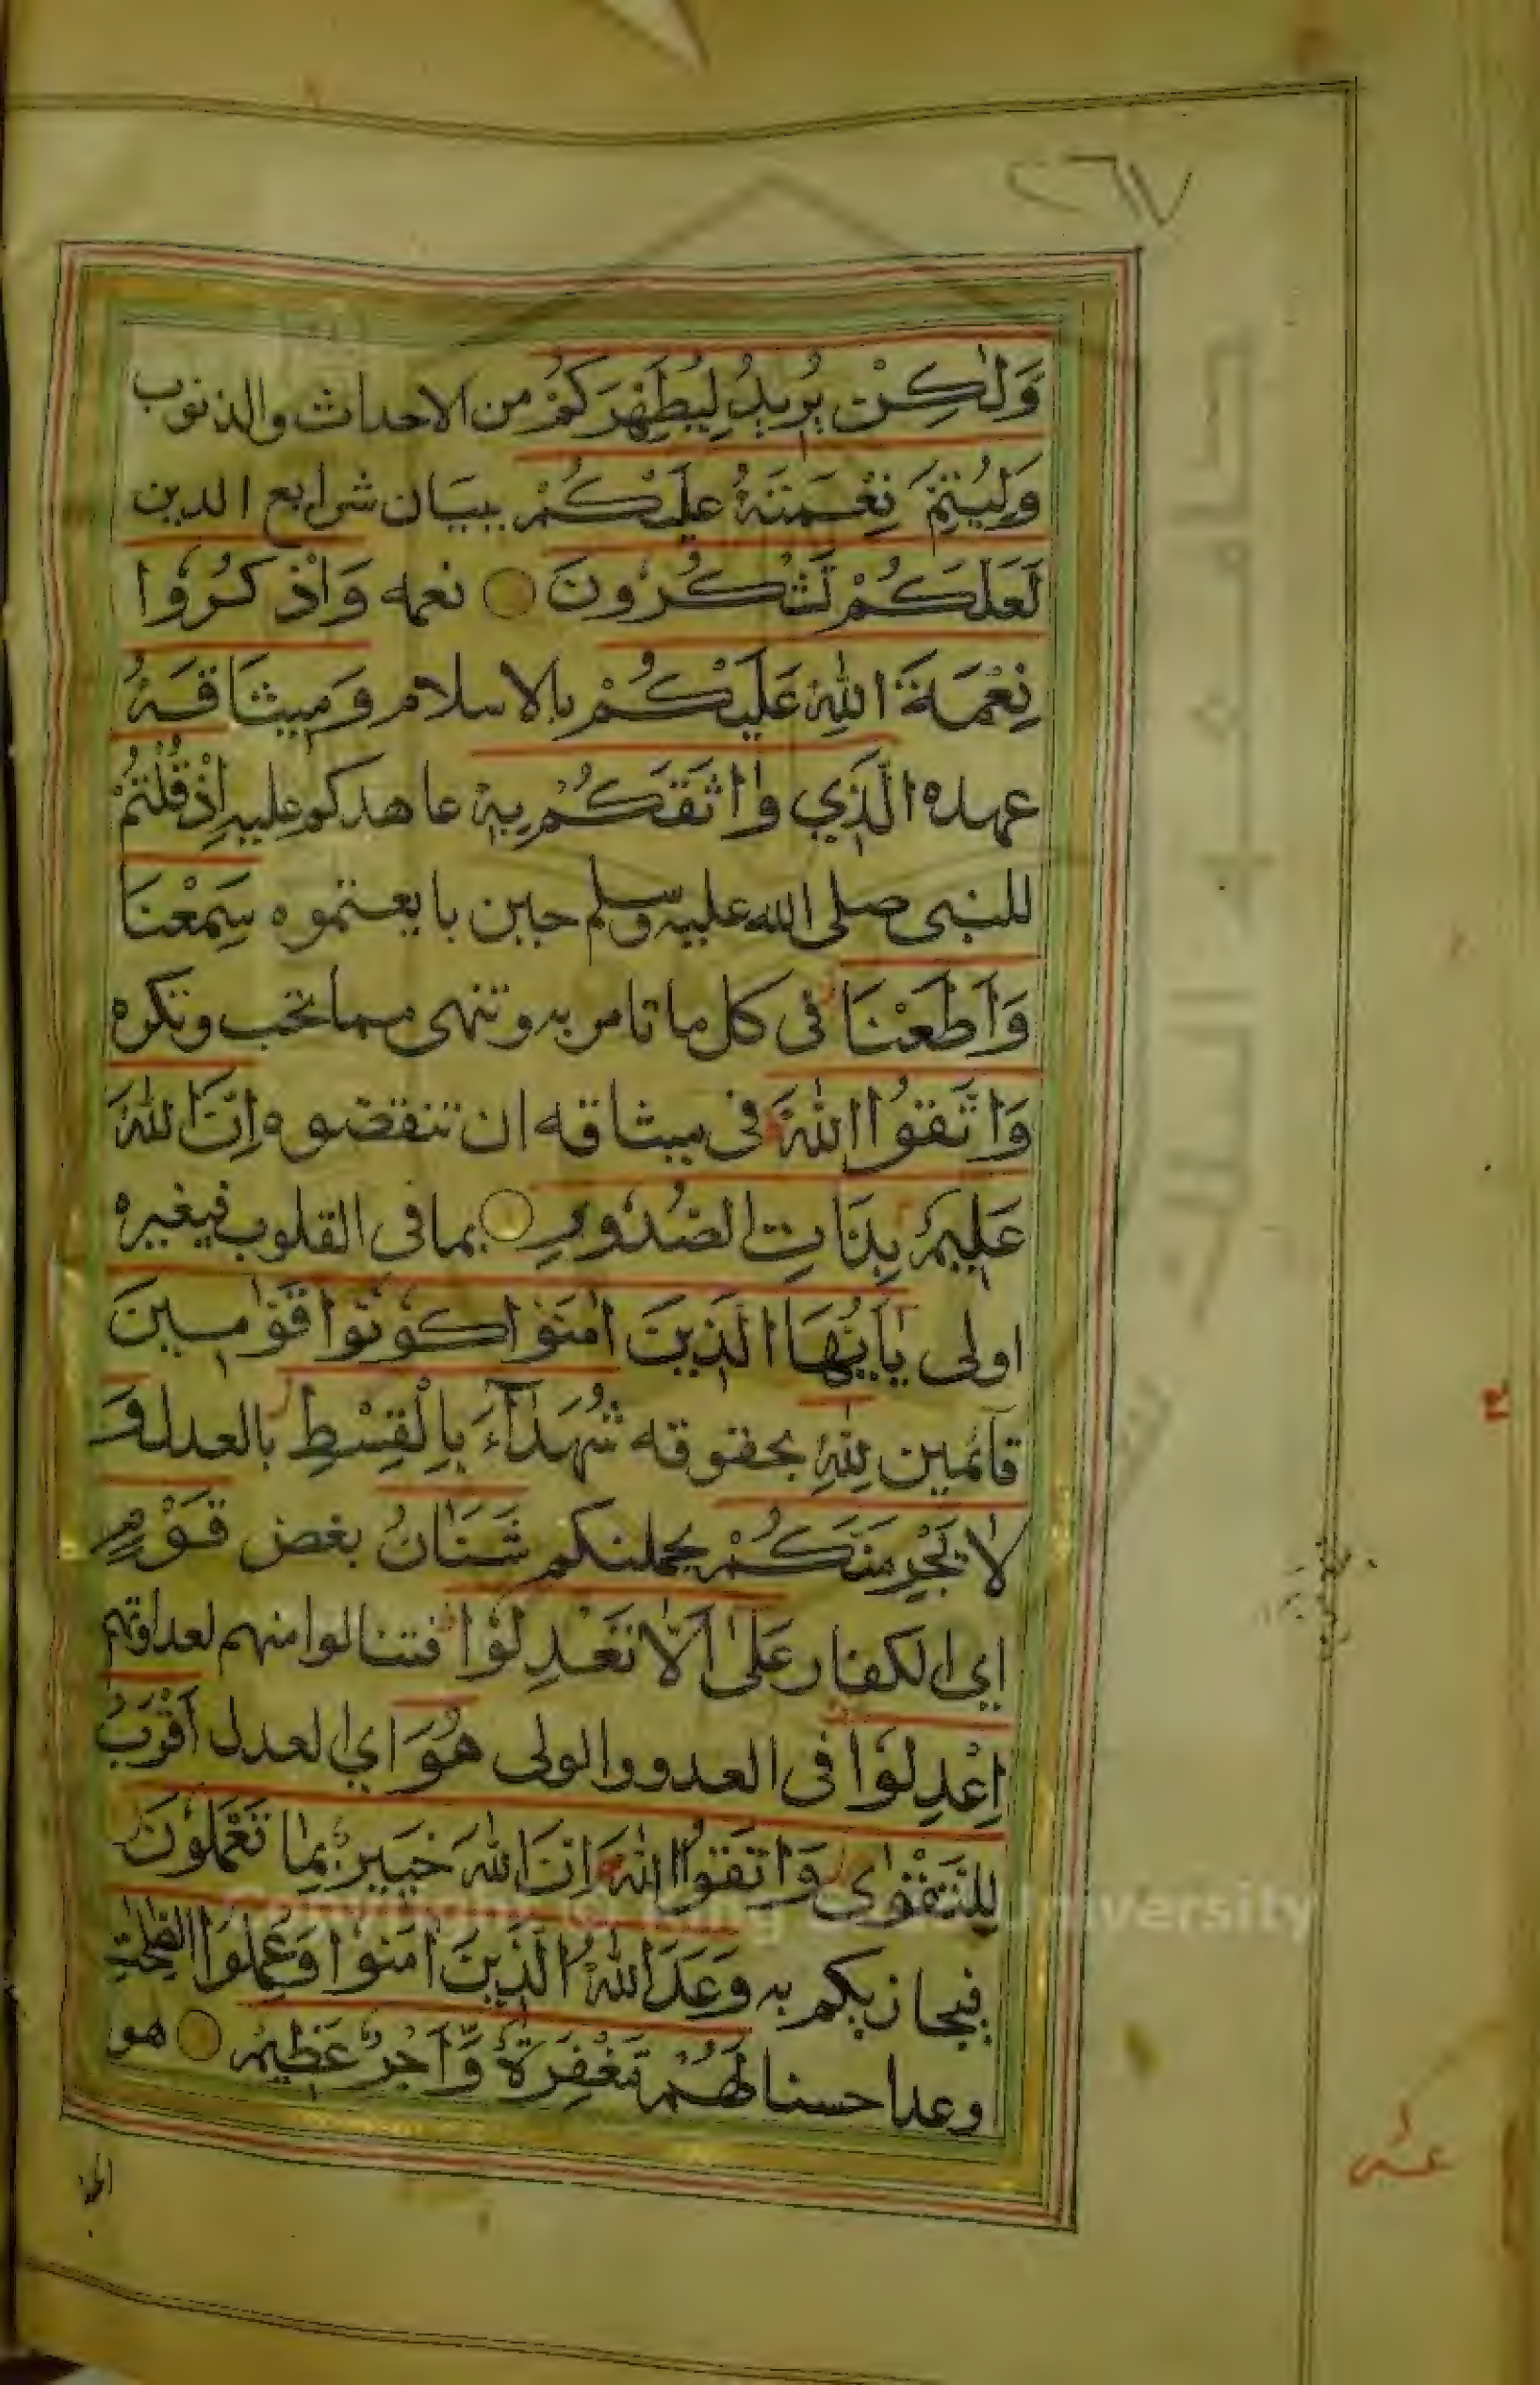 ٢٦٧
وَلٰكِنْ يُرِيدُ لِيُطَهِّرَكُمْ من الاحداث والذنوب
وَلِيُتِمَّ نِعْمَتَهُ عَلَيْكُمْ ببيان شرايع الدين
لَعَلَّكُمْ تَشْكُرُونَ نعمه وَاذْكُرُوا
نِعْمَةَ اللّٰهِ عَلَيْكُمْ بالاسلام وَمِيثَاقَهُ
عهده الَّذِي وَاثَقَكُمْ بِهِ عاهدكم عليه اِذْ قُلْتُمْ
للنبى صلى الله عليه وسلم حين بايعتموه سَمِعْنَا
وَاَطَعْنَا فى كل ما تامر به وتنهى مما تحب وتكره
وَاتَّقُوا اللّٰهَ فى ميثاقه ان تنقضوه اِنَّ اللّٰهَ
عَلِيمٌ بِذَاتِ الصُّدُورِ بما فى القلوب فبغيره
اولى يٰٓاَيُّهَا الَّذِينَ اٰمَنُوا كُونُوا قَوّٰمِينَ
قآئمين لِلّٰهِ بحقوقه شُهَدَآءَ بِالْقِسْطِ بالعدل وَ
لَا يَجْرِمَنَّكُمْ يحملنكم شَنَاٰنُ بغض قَوْمٍ
اي الكفار عَلٰى اَلَّا تَعْدِلُوا فتنالوا منهم لعداوتهم
اِعْدِلُوا فى العدو والولى هُوَ اي العدل اَقْرَبُ
لِلتَّقْوٰى وَاتَّقُوا اللّٰهَ اِنَّ اللّٰهَ خَبِيرٌ بِمَا تَعْمَلُونَ
فيجازيكم به وَعَدَ اللّٰهُ الَّذِينَ اٰمَنُوا وَعَمِلُوا الصّٰلِحٰتِ
وعدا حسنا لَهُمْ مَغْفِرَةٌ وَّاَجْرٌ عَظِيمٌ هو
Copyright © King Saud University